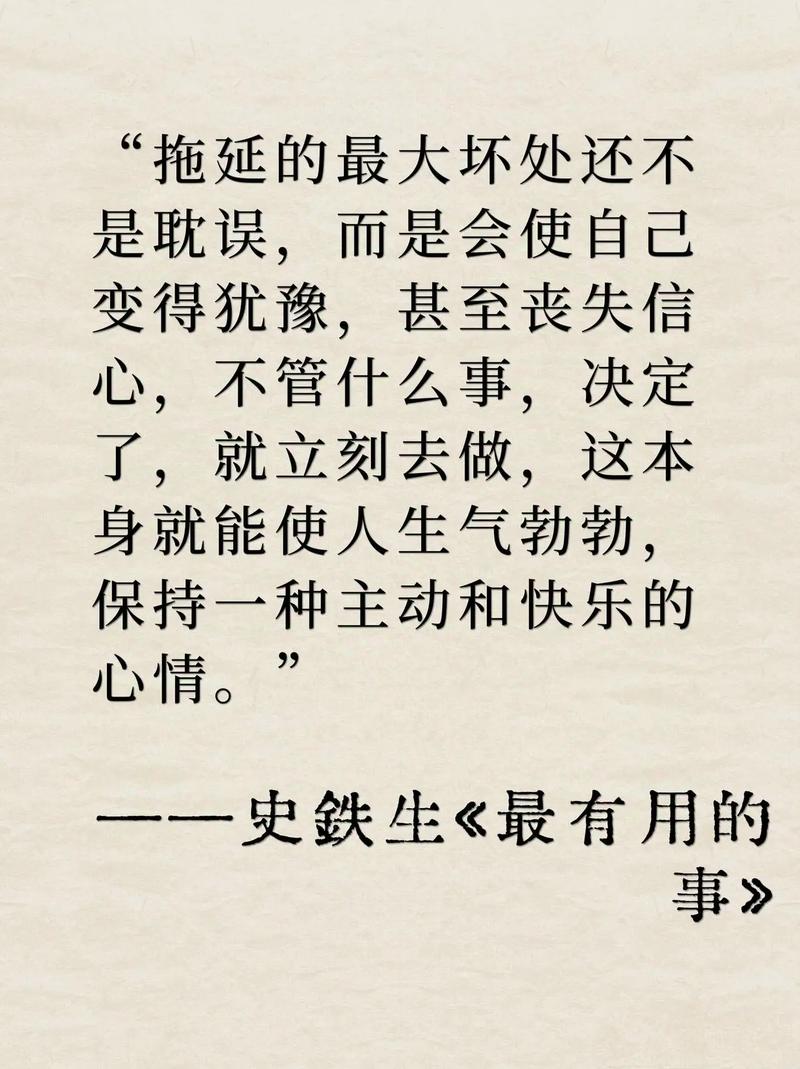 “拖延的最大坏处还不
是耽误，而是会使自己
变得犹豫，甚至丧失信
心，不管什么事，决定
了，就立刻去做，这本
身就能使人生气勃勃，
保持一种主动和快乐的
心情。”
——史鉄生《最有用的
事》